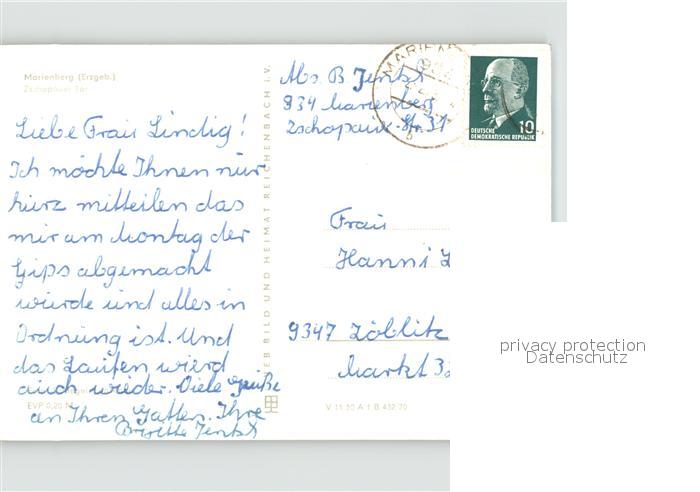 Marienberg (Erzgeb.)
Zschopauer Tor
Liebe Frau Lindig!
Ich möchte Ihnen nur
kurz mitteilen das
mir am Montag der
Gips abgemacht
wurde und alles in
Ordnung ist. Und
das Laufen wierd
auch wieder. Viele Grüße
an Ihren Gatten. Ihre
Brigitte Jentzsch
EVP 0,20 M
VEB BILD UND HEIMAT REICHENBACH i.V.
Abs. B Jentzsch
934 Marienberg
Zschopauer-Str. 31
MARIENB
DEUTSCHE
DEMOKRATISCHE REPUBLIK
10
Frau
Hanni L
9347 Zöblitz
Markt 3
V 11 50 A 1 B 432 70
privacy protection
Datenschutz